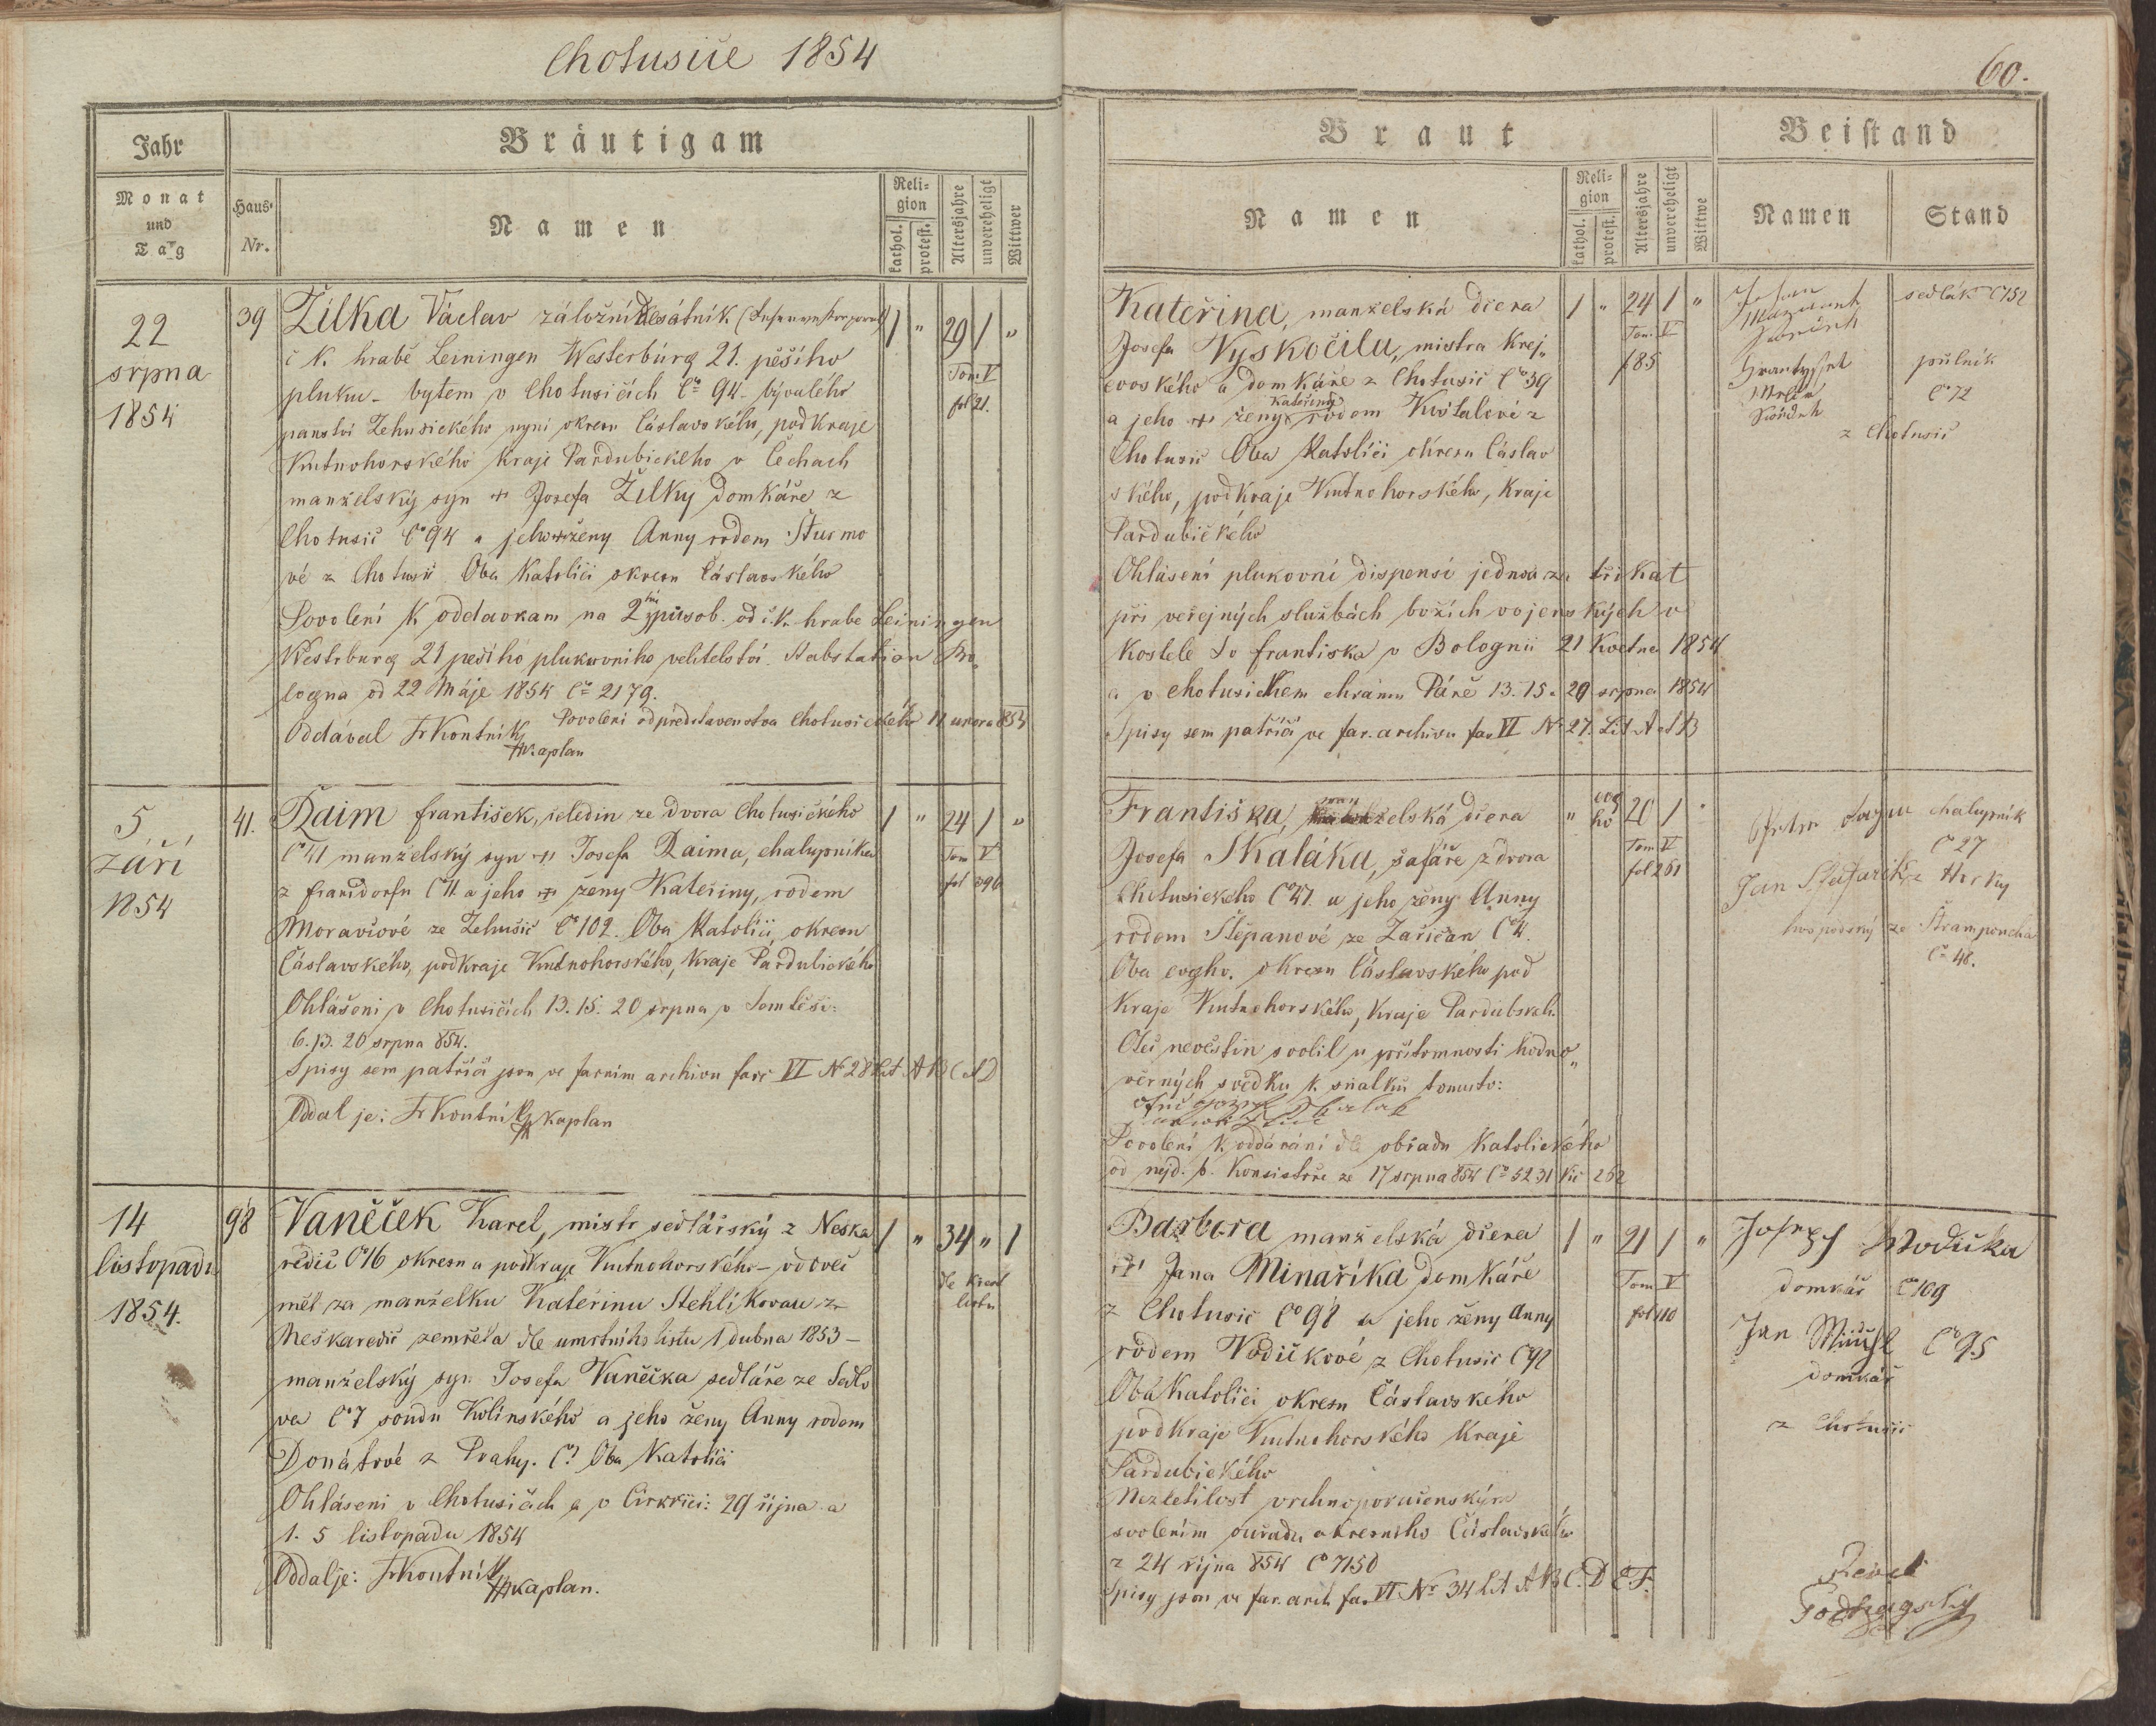 Chotusice 1854
60.
Jahr
Bräutigam
Monat
und
Tag
Haus-
Nr.
Namen
Reli-
gion
kathol.
protest.
Altersjahre
unvereheligt
Wittwer
22
srpna
1854
39
Žilka Václav záložní desátník
c k. hrabě Leiningen Westerburg 21. pěšího
pluku - bytem v Chotusicích Čo 94 - bývalého
panství Žehusického nyní okresu Čáslavského, podkraje
Kutnohorského kraje Pardubického v Čechach
manželský syn † Josefa Žilky domkáře z
Chotusic Čo 94 a jeho † ženy Anny rodem Šturmo
vé z Chotusic Oba Katolíci okresu Čáslavského
1 " 29 1 "
Tom V
fol 21.
Povolení k oddavkam na 2hý způsob. od c. k. hrabe Leiningen
Westrburg 21 pešího plukovního velitelství. Stabstation Bo
logna od 22 Máje 1854 Čo 2179.
Povolení od představenstva Chotusického 11 unora 854
Oddával Fr Kontník
kaplan
5
září
1854
41.
Daim František, čeledín ze dvora Chotusického
Čo 41 manželský syn † Josefa Daima, chalupníka
z Franidorfu Č 11 a jeho † ženy Kateřiny, rodem
Moravcové ze Žehušic Čo 102. Oba Katolíci, okresu
Čáslavského, podkraje Kutnohorského, Kraje Pardubického
1 " 24 1 "
Tom V
fol 396
Ohlášeni v Chotusicích 13. 15. 20 srpna v
6. 13. 20 srpna 854.
Spisy sem patřící jsou ve farním archivu fasc VI No 28 Lit. A B C D
Oddal je: Fr Kontník kaplan
14
listopadu
1854.
98
Vaněček Karel, mistr sedlářský z Neska
redic Čo 16 okresu a podkraje Kutnohorského - vdovec
měl za manželku Kateřinu Stehlíkovau z
Neškaredic zemřela dle umrtního listu 1 dubna 1853 -
manželský syn Josefa Vaněčka sedláře ze Sedlo
va Čo 7 soudu Kolínského a jeho ženy Anny rodem
Donátové z Prahy. Č? Oba Katolíci
1 " 34 " 1
dle křest
listu
Ohlášeni v Chotusicích a v Cirkvici: 29 října a
1. 5 listopadu 1854
Oddal je: Fr Kontník
kaplan.
Braut
Beistand
Namen
Reli-
gion
kathol.
protest.
Altersjahre
unvereheligt
Wittwe
Namen
Stand
Kateřina, manželská dcera
Josefa Vyskočila, mistra Krej„
čovského a domkáře z Chotusic Čo 39
Kateřiny
a jeho † ženy rodom Kvítalové z
Chotusic Oba Katolíci okresu Čáslav
ského, podkraje Kutnohorského, Kraje
Pardubického
1 " 24 1 "
Tom V
f 85
sedlák Č 52
půlník
Čo 72
z Chotusic
Ohlášení plukovní dispensí jednou za třikát
při veřejných službách božích vojenských v
kostele Sv Františka v Bolognii 21 Května 1854
a v Chotusickem chrámu Páně 13. 15 a 20 srpna 1854
Spisy sem patřící ve far. archivu fas VI No 27. Lit A et B
Františka, manželská dcera
Josefa Skaláka, šafáře z dvora
Chotusického Čo 41. a jeho ženy Anny
rodem Štěpanové ze Zaříčan Čo 4.
Oba evgho. okresu Čáslavského pod
kraje Kutnohorského, kraje Pardubskeh.
" evg
ho 20 1 "
Tom V
fol 261
chalupník
Čo 27
Jan Stafařík z Horky
hospodský ze Štrampoucha
Čo 48.
Otec nevěstin svolil u přítomnosti hodno„
věrných svědku k sňatku tomuto:
Povolení k oddávání dle obřadu Katolického
od nejd. b. Konsistoře ze 17 srpna 854 Čo 5231 Kč 262
Barbora manželská dcera
† Jana Minaříka domkáře
z Chotusic Čo 98 a jeho ženy Anny
rodem Vodičkové z Chotusic Č 92
Oba Katolíci okresu Čáslavského
podkraje Kutnohorského Kraje
Pardubického
1 " 21 1 "
Tom V
fol 110
Josef Wodička
domkář Čo 109
Jan Čo 95
domkář
z Chotusic
Nezletilost vrchnoporučenským
svolením ouřadu okresního Čáslavského
z 24 října 854 Čo 7150
Spisy jsou ve far. arch fas VI No 34 Lit A B C. D E F.